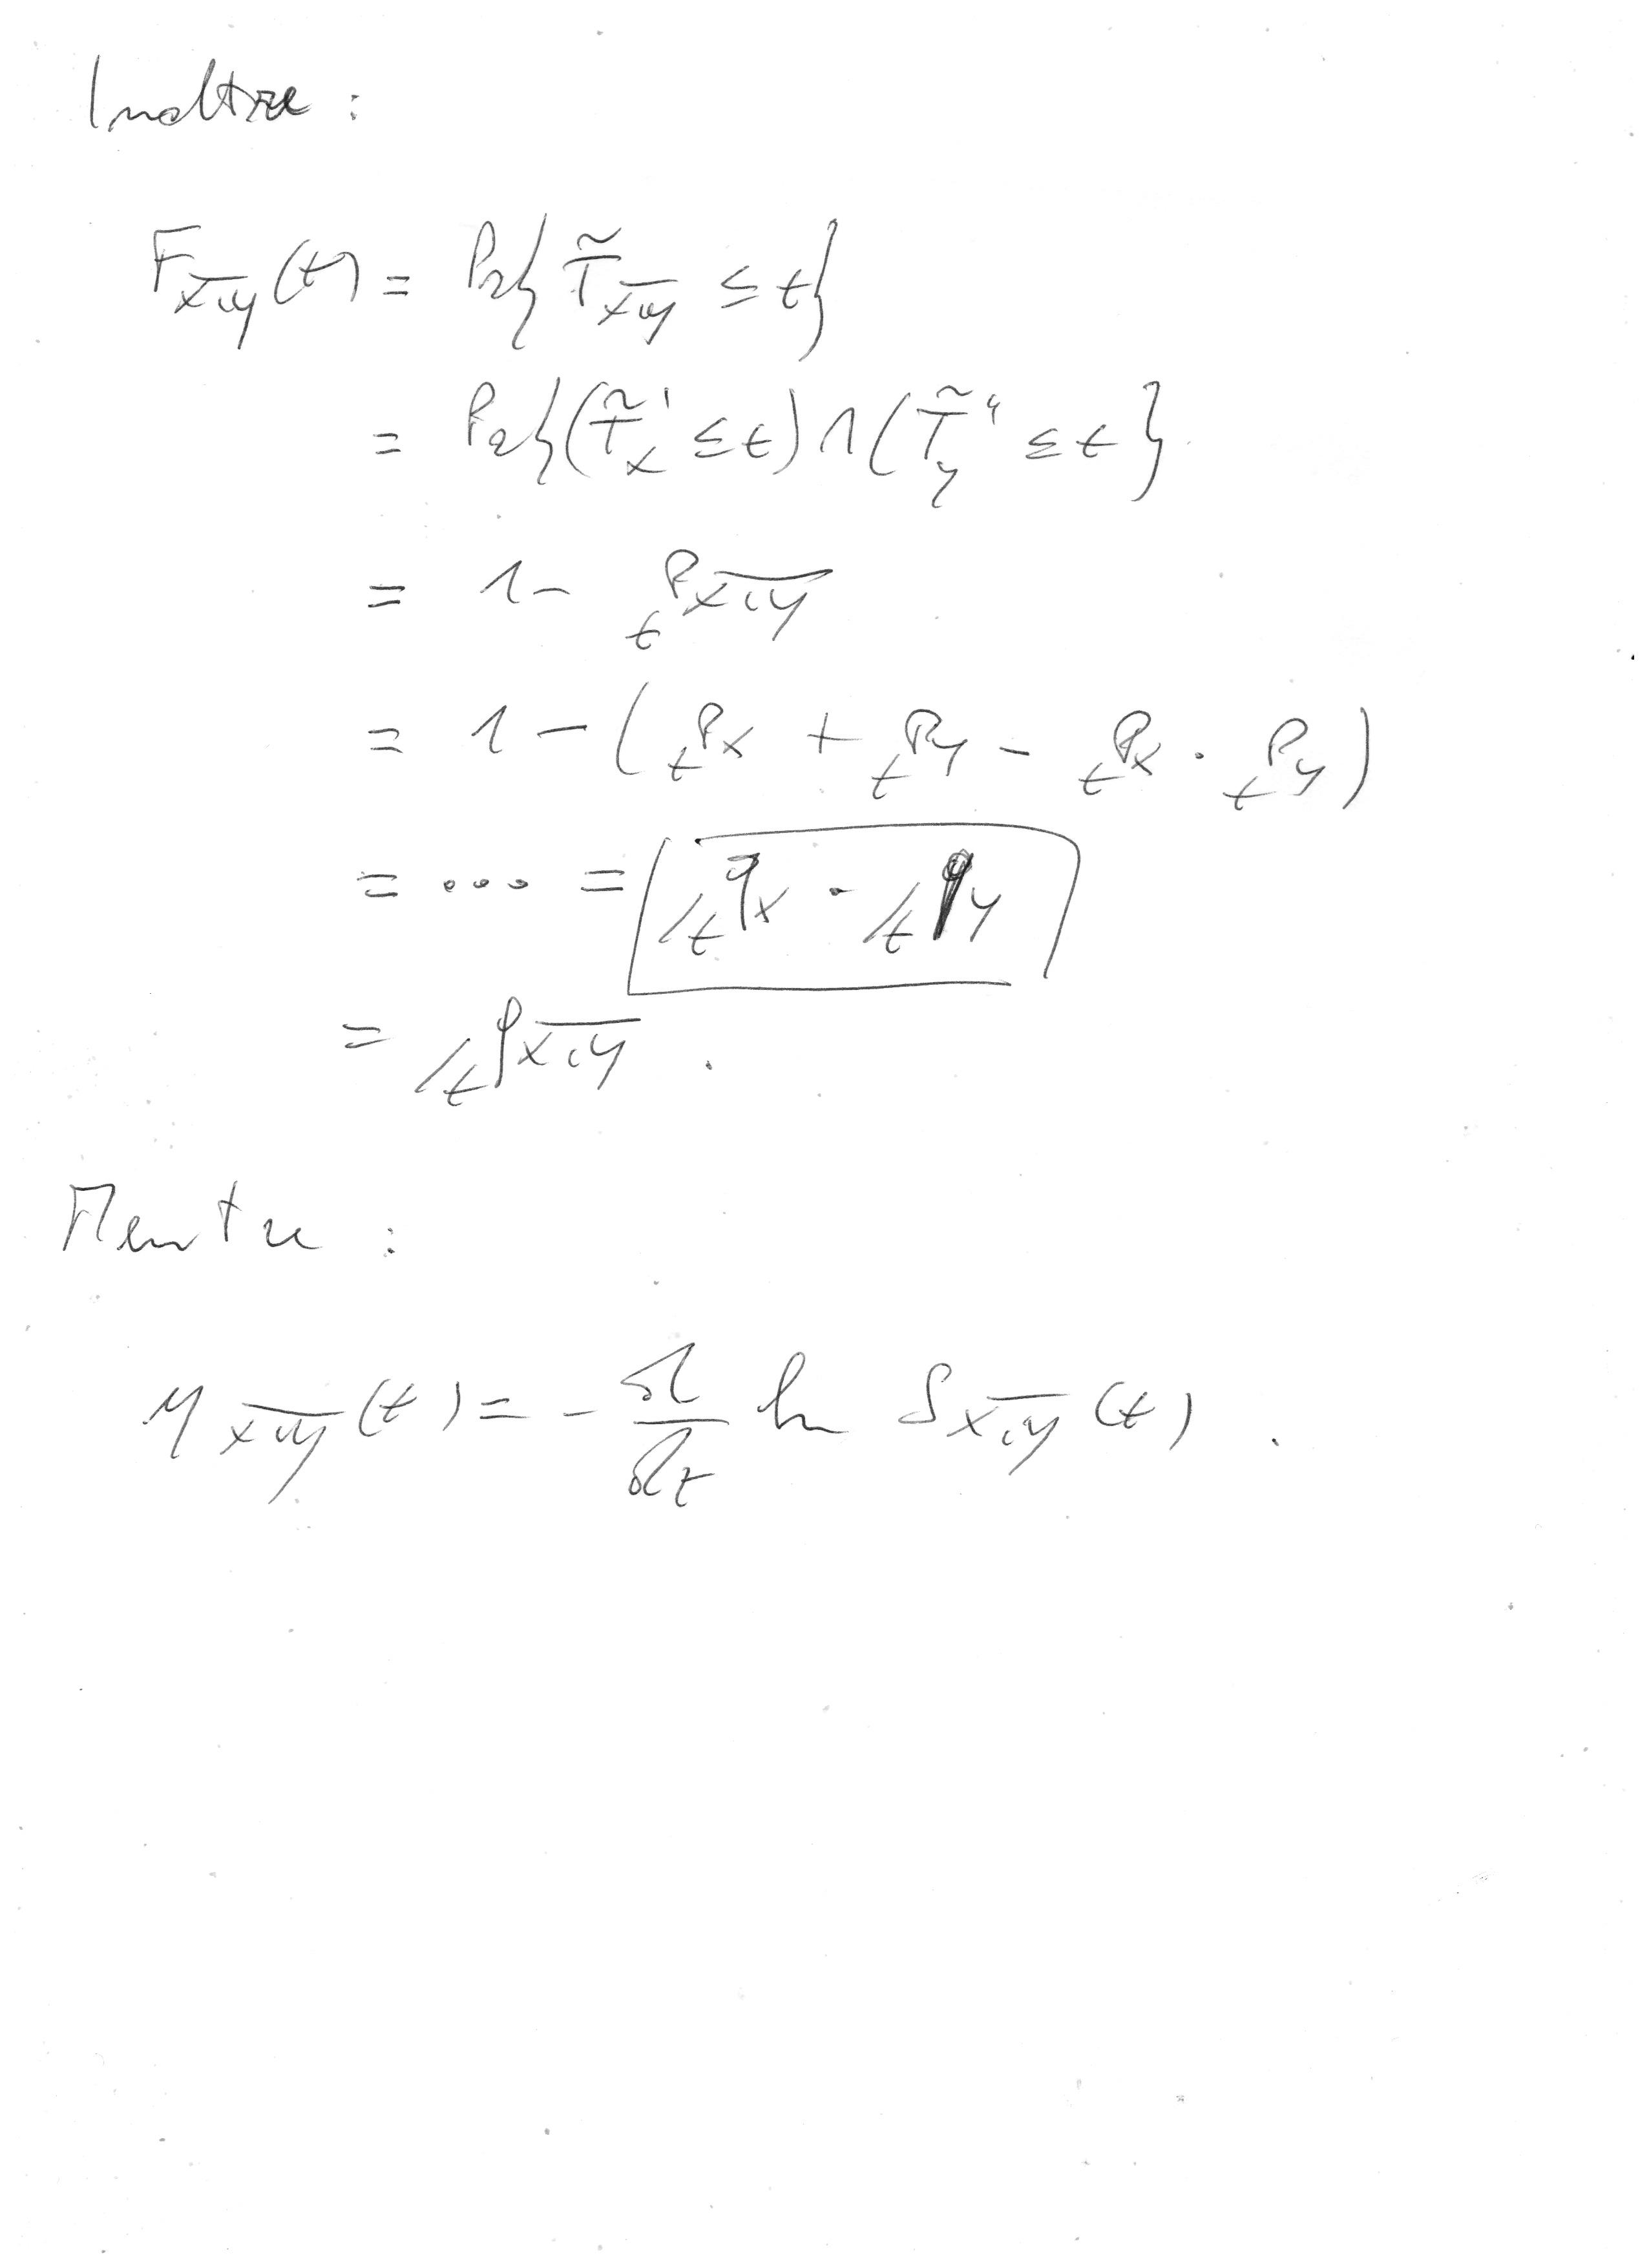 Inoltre :
F_{\overline{x,y}}(t) = Pr{ T̃_{\overline{x,y}} ≤ t }
= Pr{ (T̃'_x ≤ t) ∧ (T̃''_y ≤ t }
= 1 - _tp_{\overline{x,y}}
= 1 - ( _tp_x + _tp_y - _tp_x · _tp_y )
= ... = _{/t}q_x · _{/t}q_y
= _{/t}q_{\overline{x,y}} .
Mentre :
μ_{\overline{x,y}}(t) = - \frac{d}{dt} ln S_{\overline{x,y}}(t) .